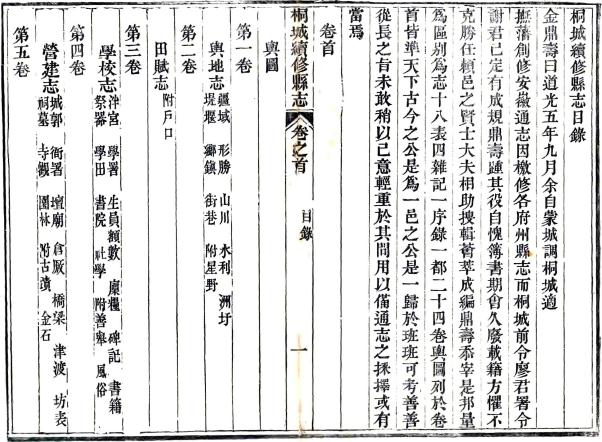 桐城續修縣志目錄
金鼎壽曰道光五年九月余自蒙城調桐城適
撫藩創修安徽通志因檄修各府州縣志而桐城前令廖君署令
謝君已定有成規鼎壽踵其役自愧簿書期會久廢載籍方懼不
克勝任賴邑之賢士大夫相助搜輯薈萃成編鼎壽忝宰是邦量
為區別為志十八表四雜記一序錄一都二十四卷輿圖列於卷
首皆準天下古今之公是為一邑之公是一歸於班班可考善善
從長之旨未敢稍以己意輕重於其間用以備通志之採擇或有
當焉
卷首
輿圖
桐城續修縣志 卷之首 目錄 一
第一卷
輿地志 疆域 形勝 山川 水利 洲圩
堤堰 鄉鎮 街巷 附星野
第二卷
田賦志 附戶口
第三卷
學校志 泮宮 學署 生員額數 廩糧 碑記 書籍
祭器 學田 書院 社學 附善舉 風俗
第四卷
營建志 城郭 衙署 壇廟 倉厫 橋梁 津渡 坊表
祠墓 寺觀 園林 附古蹟 金石
第五卷